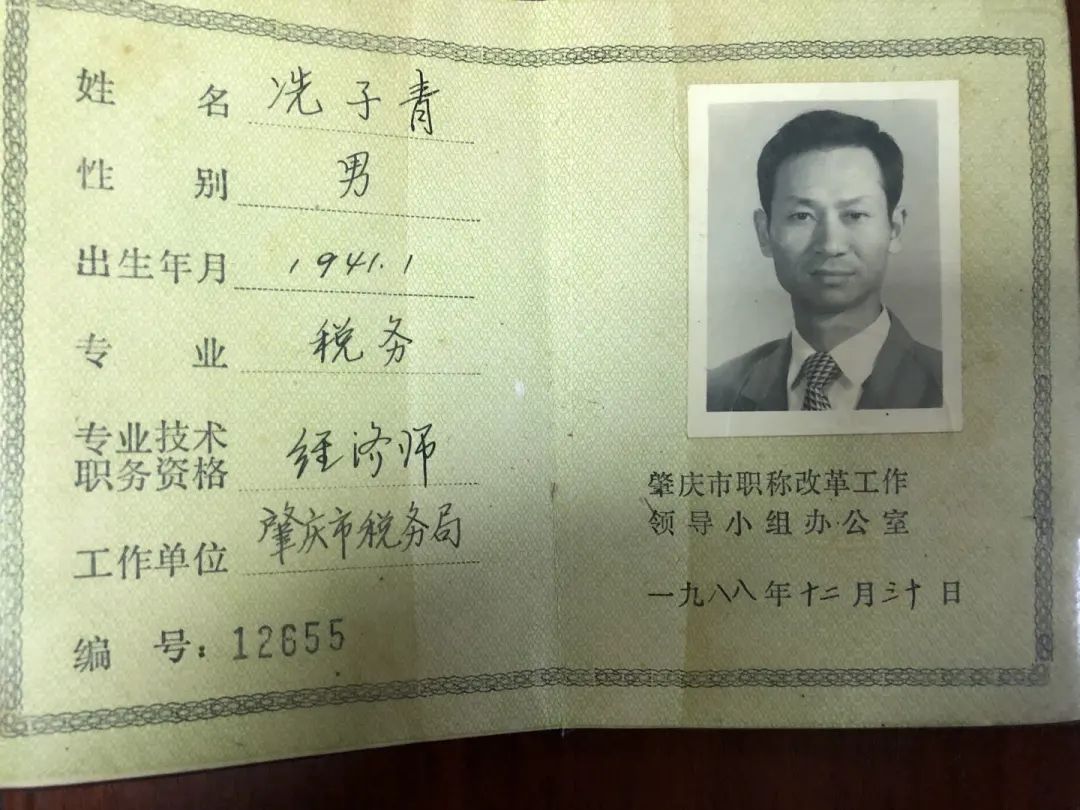 姓 名 冼子青
性 别 男
出生年月 1941.1
专 业 税务
专业技术
职务资格 经济师
工作单位 肇庆市税务局
编 号：12655
肇庆市职称改革工作
领导小组办公室
一九八八年十二月三十日